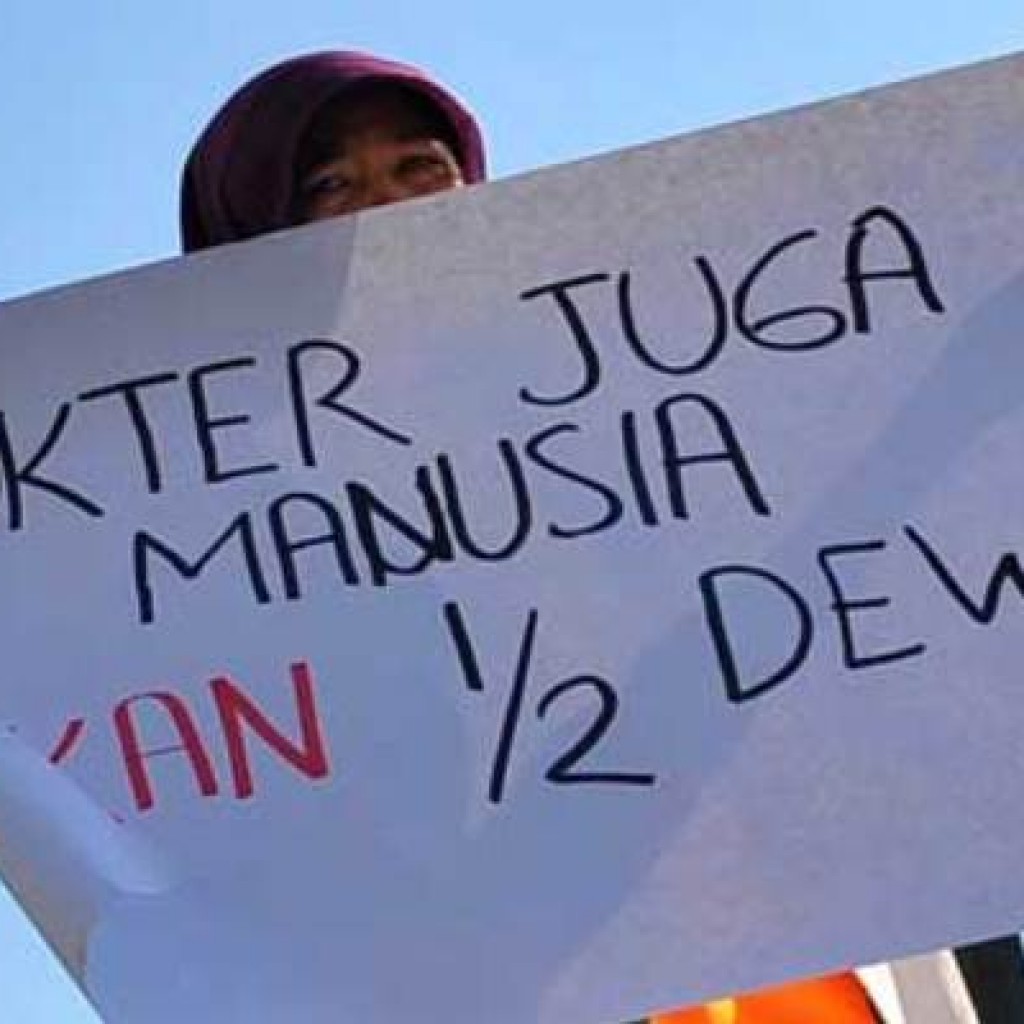 KTER JUGA
MANUSIA
KAN 1/2 DEW